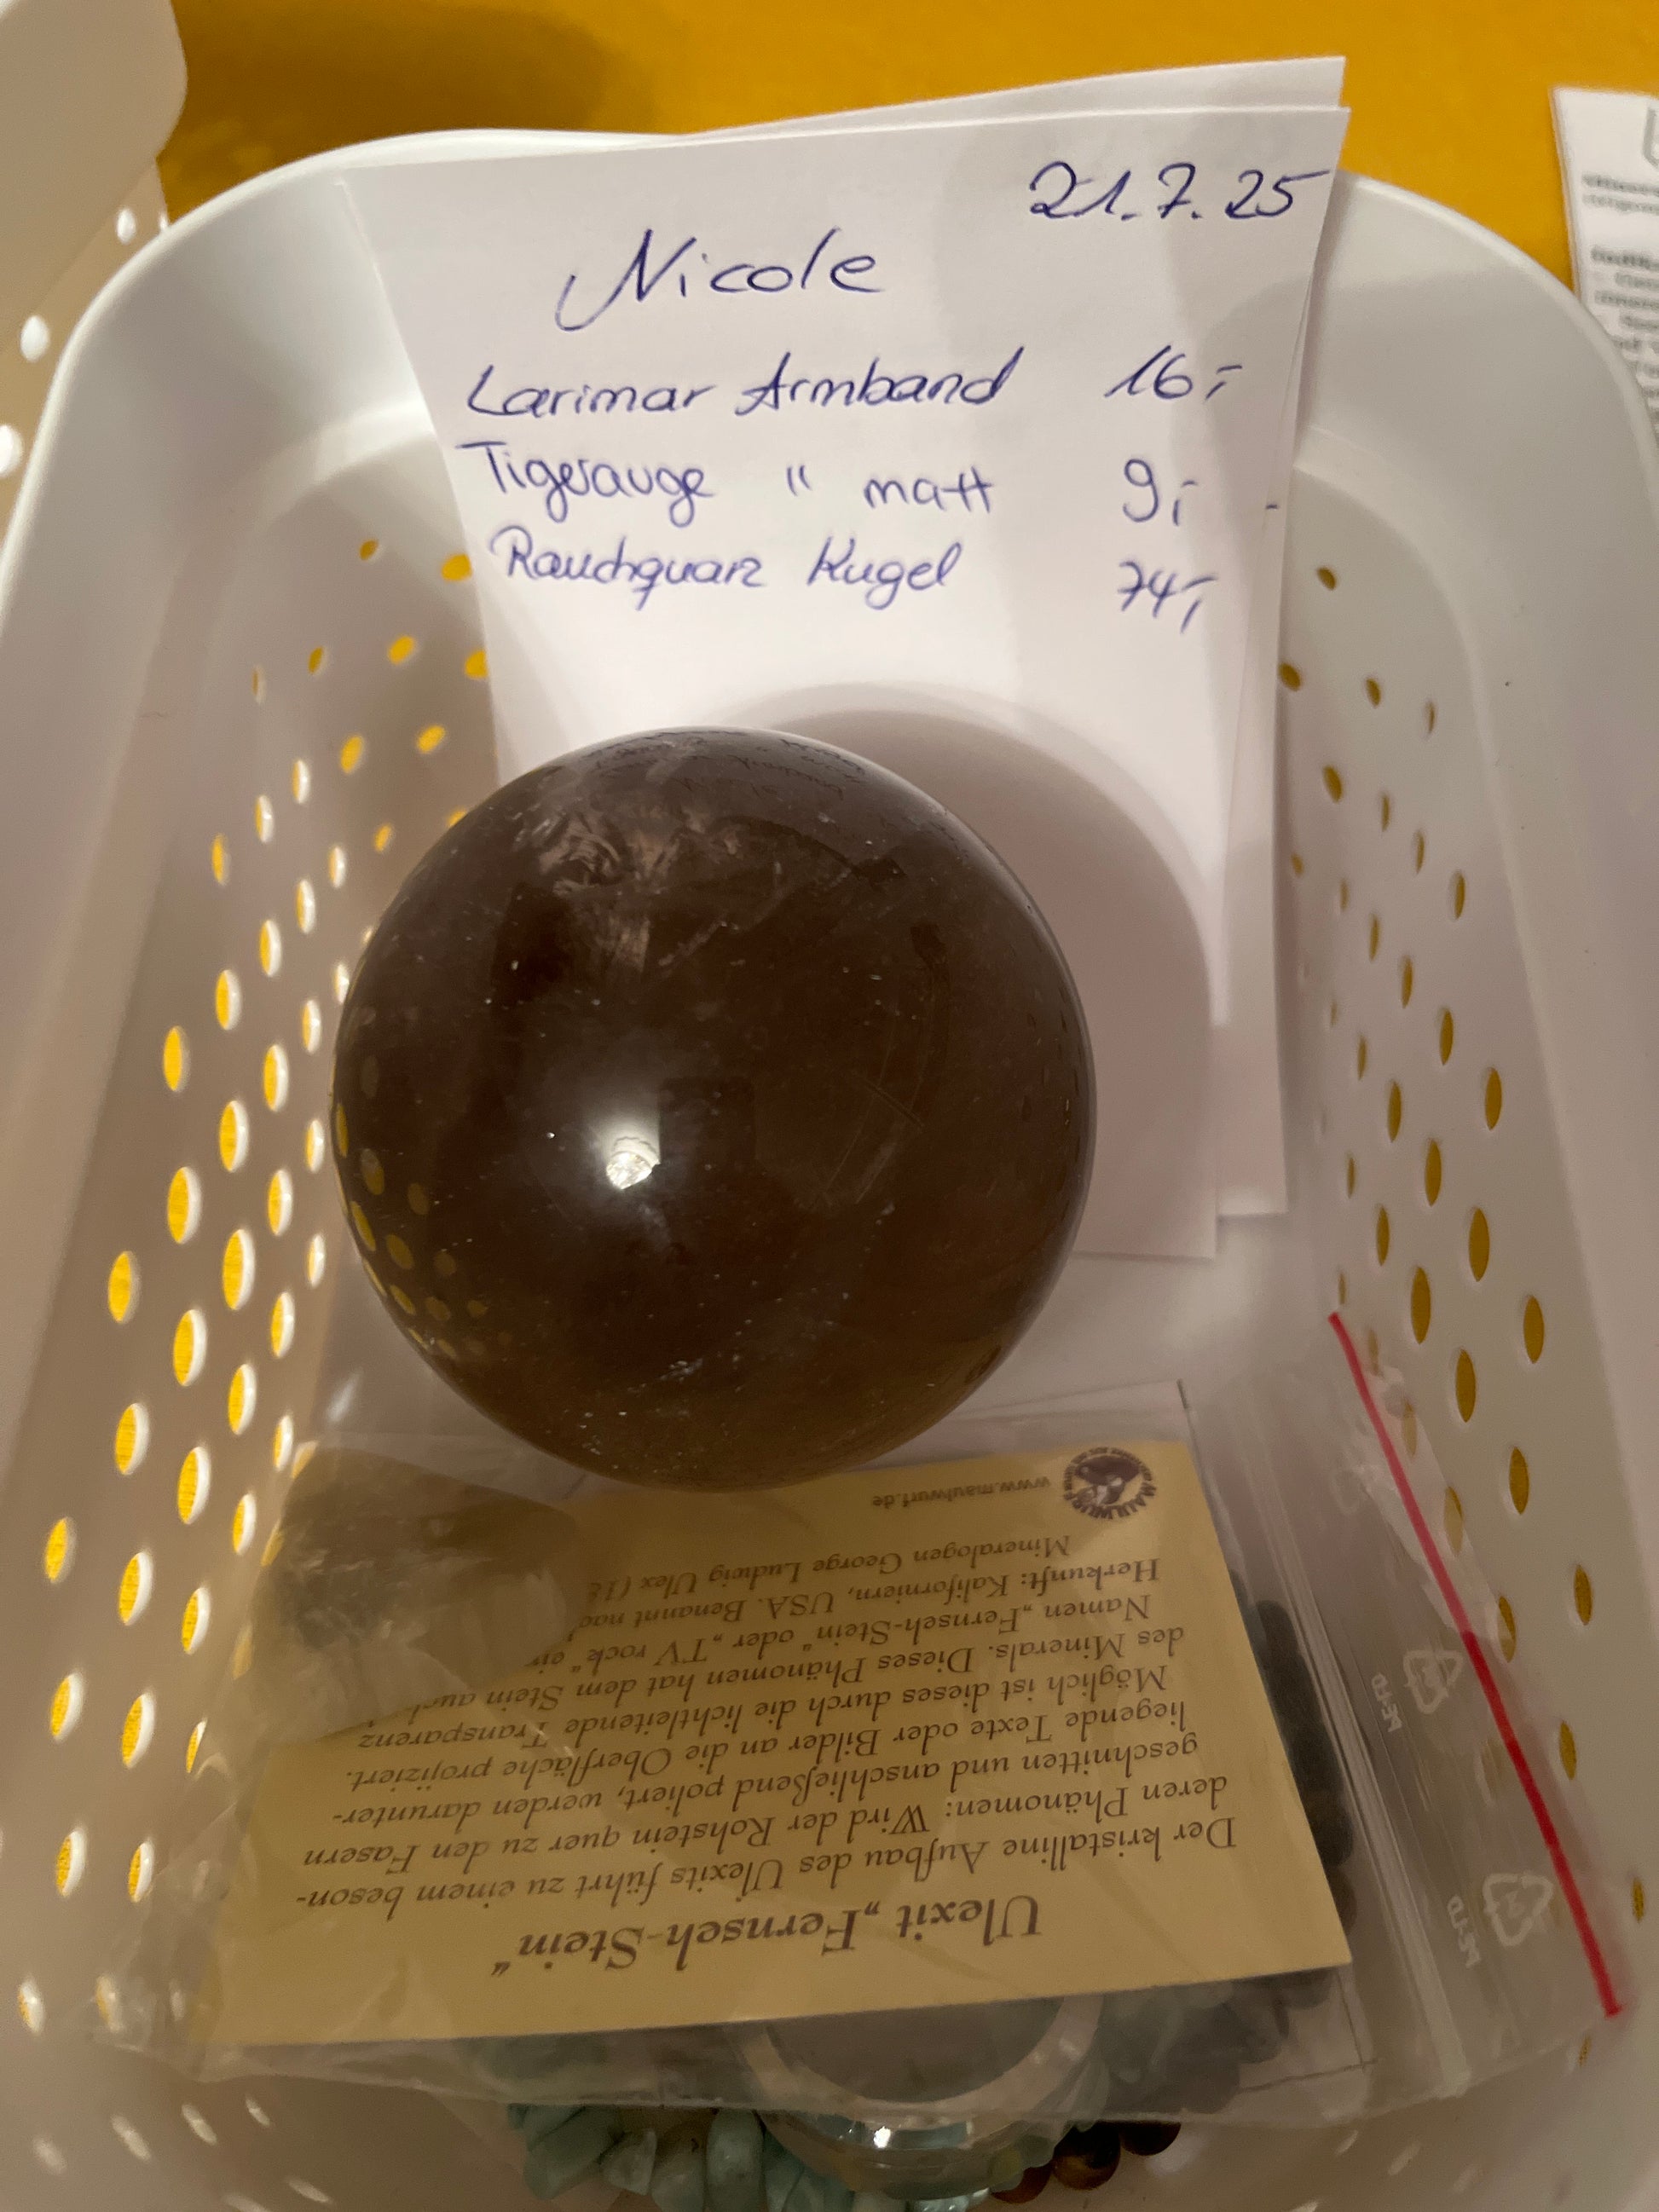 21.7.25
Nicole
Larimar Armband 16,-
Tigerauge " matt 9,-
Rauchquarz Kugel 74,-
Ulexit „Fernseh-Stein“
Der kristalline Aufbau des Ulexits führt zu einem beson-
deren Phänomen: Wird der Rohstein quer zu den Fasern
geschnitten und anschließend poliert, werden darunter-
liegende Texte oder Bilder an die Oberfläche projiziert.
Möglich ist dieses durch die lichtleitende Transparenz
des Minerals. Dieses Phänomen hat dem Stein auch
Namen „Fernseh-Stein“ oder „TV rock“
Herkunft: Kalifornien, USA. Benannt
Mineralogen George Ludwig Ulex
www.maulwurf.de
MAULWURF